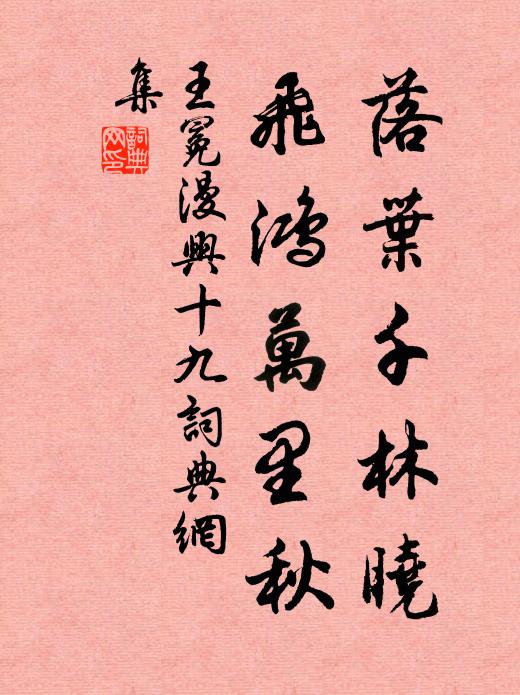 落葉千林曉
飛鴻萬里秋
王冕漫興十九詞典網
集
詞典
网印